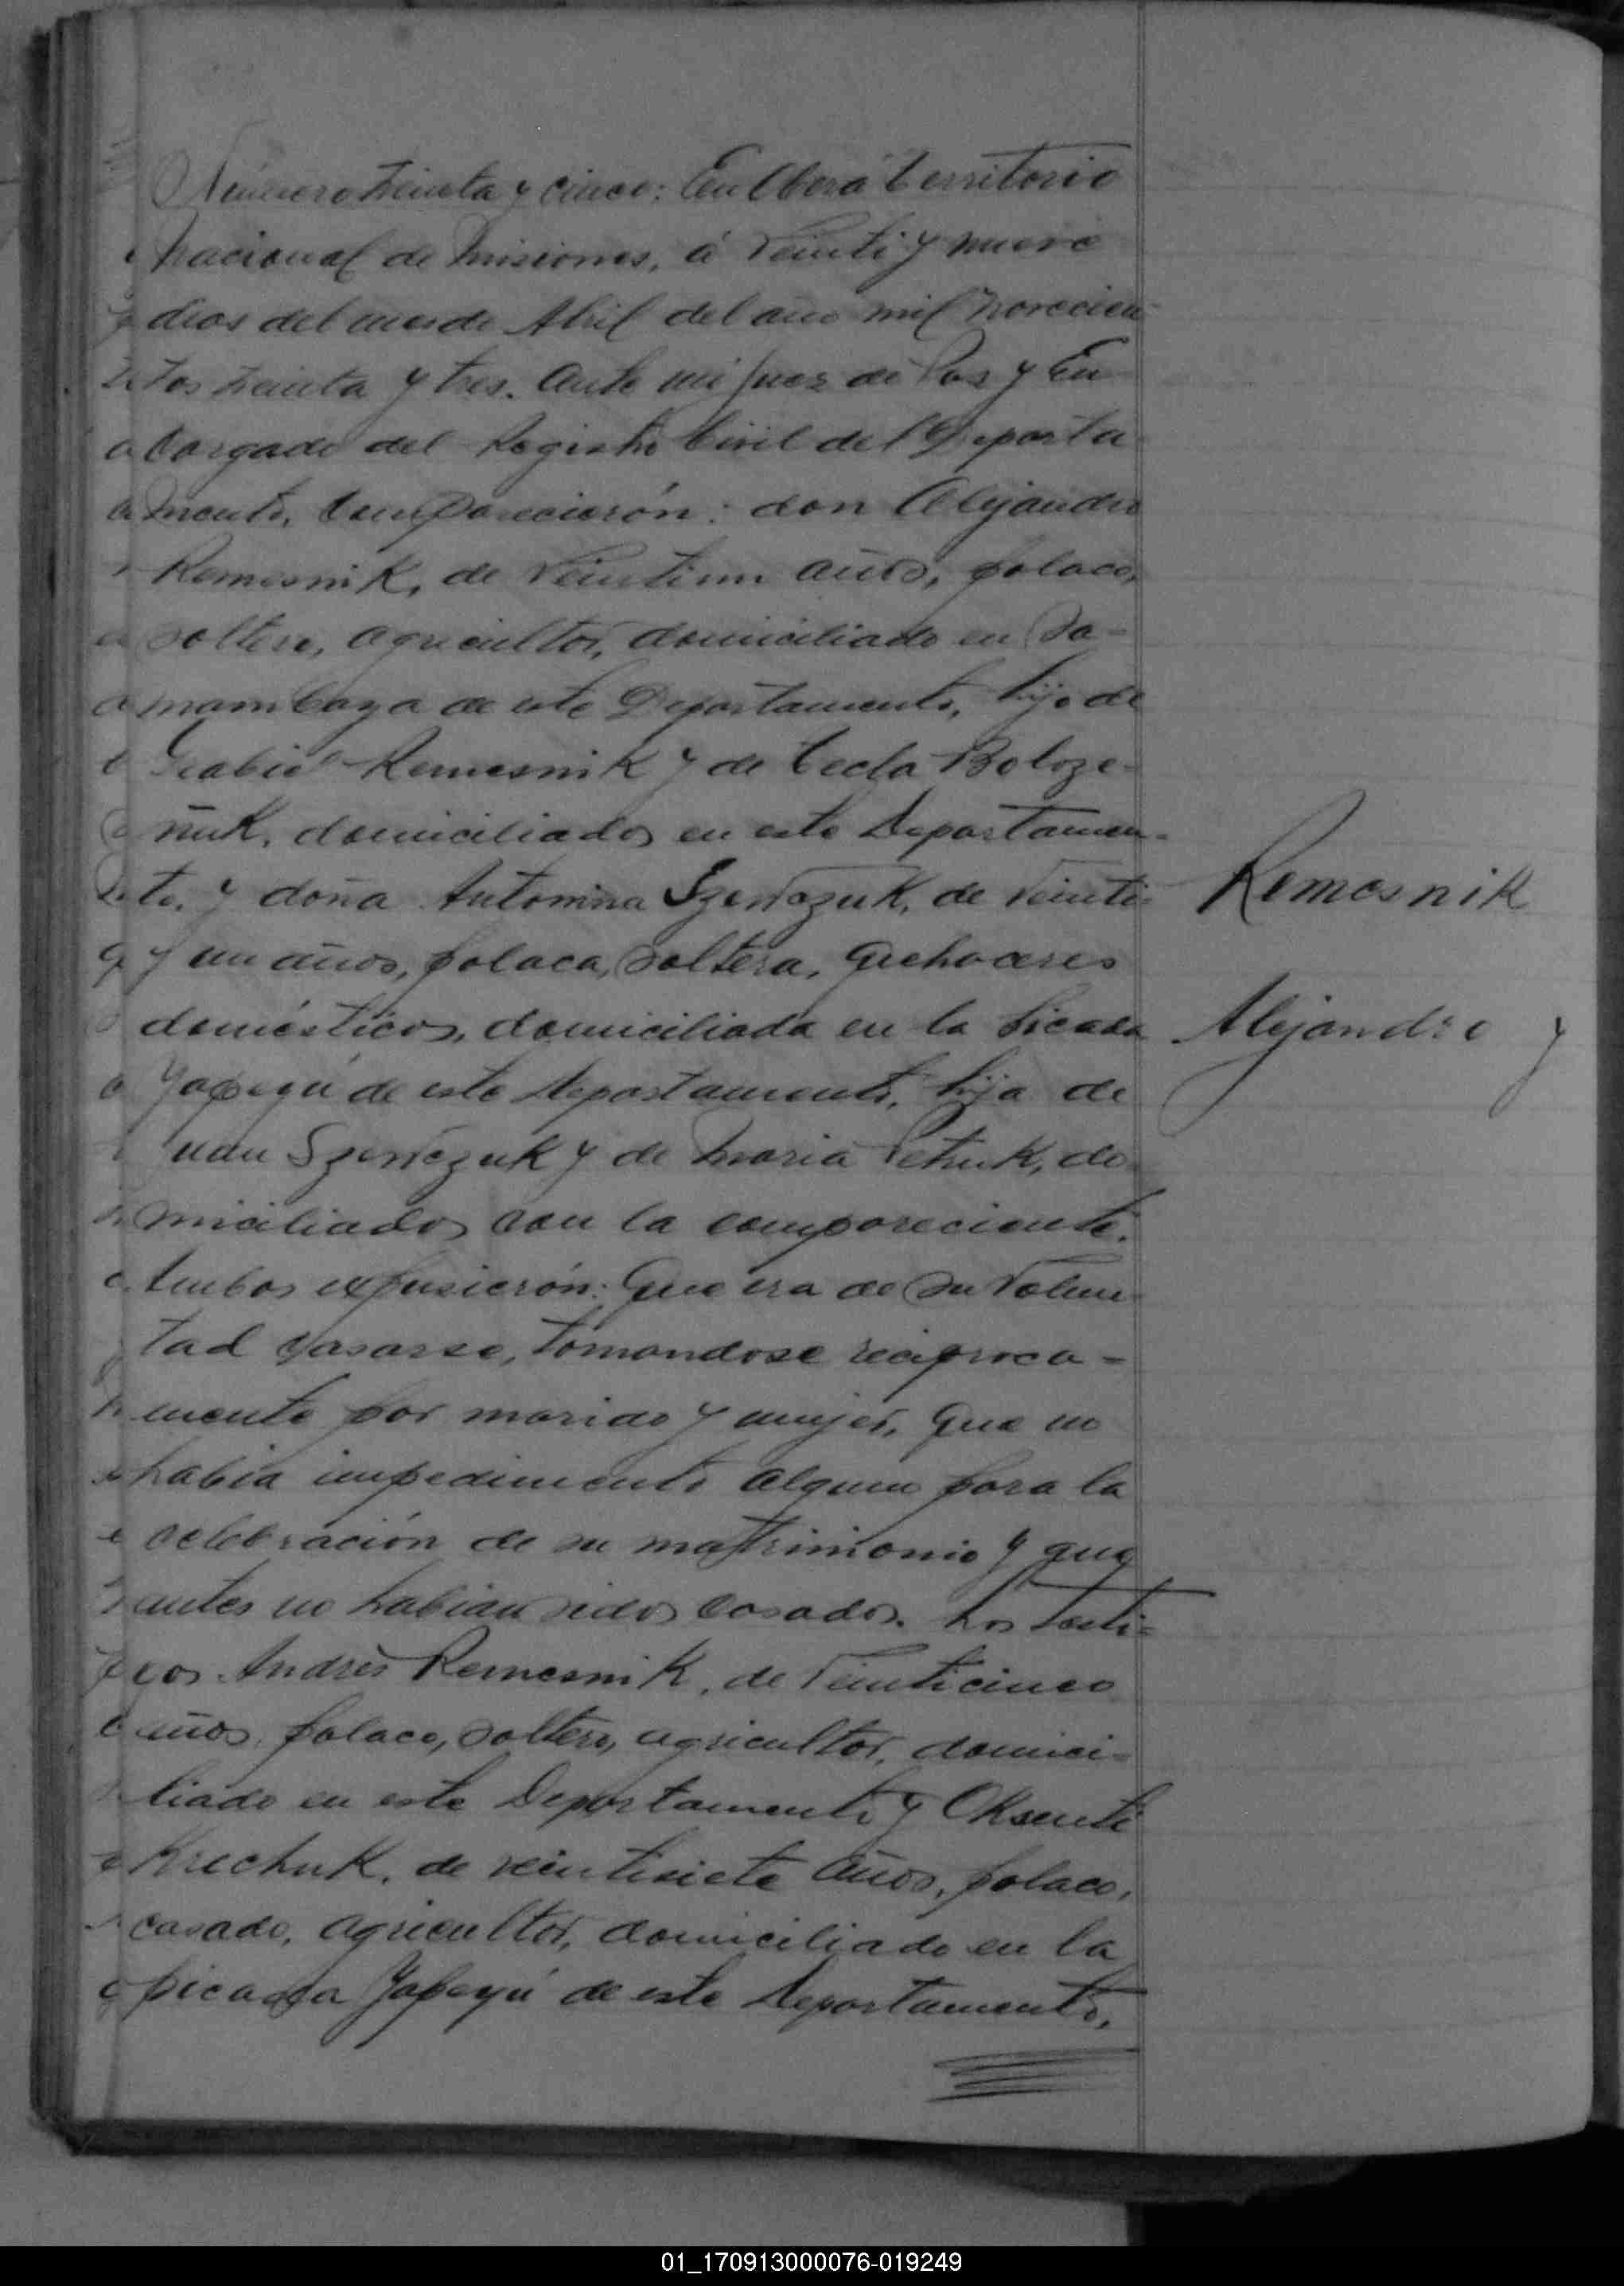 Número treinta y cinco: En Oberá Territorio
Nacional de Misiones, á Veinti y nueve
dias del mes de Abril del año mil novecien-
tos treinta y tres. Ante mi Juez de Paz y En
cargado del Registro Civil del Departa-
mento, Comparecierón: don Alejandro
Remesnik, de Veintiun años, polaco,
soltero, agricultor, domiciliado en Sa-
mambaya de este Departamento, hijo de
Remesnik y de Tecla Boloze-
ñuk, domiciliados en este Departamen-
to, y doña Antonina Szewczuk, de Veinti-
y un años, polaca, soltera, quehaceres
domésticos, domiciliada en la Picada
Yapeyú de este Departamento, hija de
Juan Szewczuk y de Maria Petruk, do-
miciliados con la compareciente.
Ambos expusierón: Que era de su Volun-
tad casarse, tomandose reciproca-
mente por marido y mujer, que no
había impedimento alguno para la
celebración de su matrimonio y que
antes no habian sidos casados. Los testi-
gos Andrés Remesnik, de Veinticinco
años, polaco, soltero, agricultor, domici-
liado en este Departamento y Oksenti
Krechuk, de veintisiete años, polaco,
casado, agricultor, domiciliado en la
picada Yapeyú de este Departamento,
Remesnik
Alejandro y
01_170913000076-019249